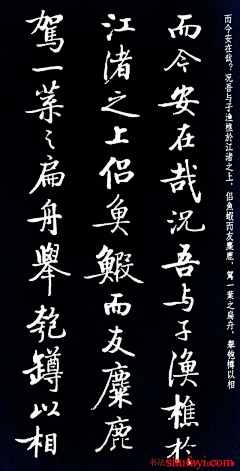 而今安在哉？况吾与子渔樵於江渚之上，侣魚蝦而友麋鹿，駕一葉之扁舟，舉匏樽以相
而今安在哉況吾与子漁樵於
江渚之上侣魚鰕而友麋鹿
駕一葉之扁舟舉匏罇以相
shufayi.com